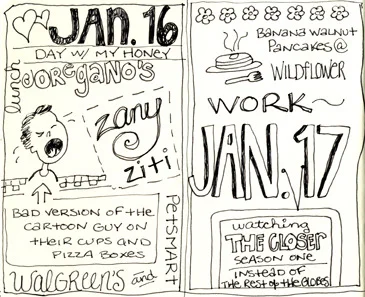 JAN. 16
DAY W/ MY HONEY
lunch
@OREGANO'S
zany
ziti
BAD VERSION OF THE
CARTOON GUY ON
THEIR CUPS AND
PIZZA BOXES
WALGREEN'S and
PETSMART
BANANA WALNUT
PANCAKES @
WILDFLOWER
WORK~
JAN. 17
watching
THE CLOSER
SEASON ONE
INSTEAD OF
THE REST OF THE GLOBES.